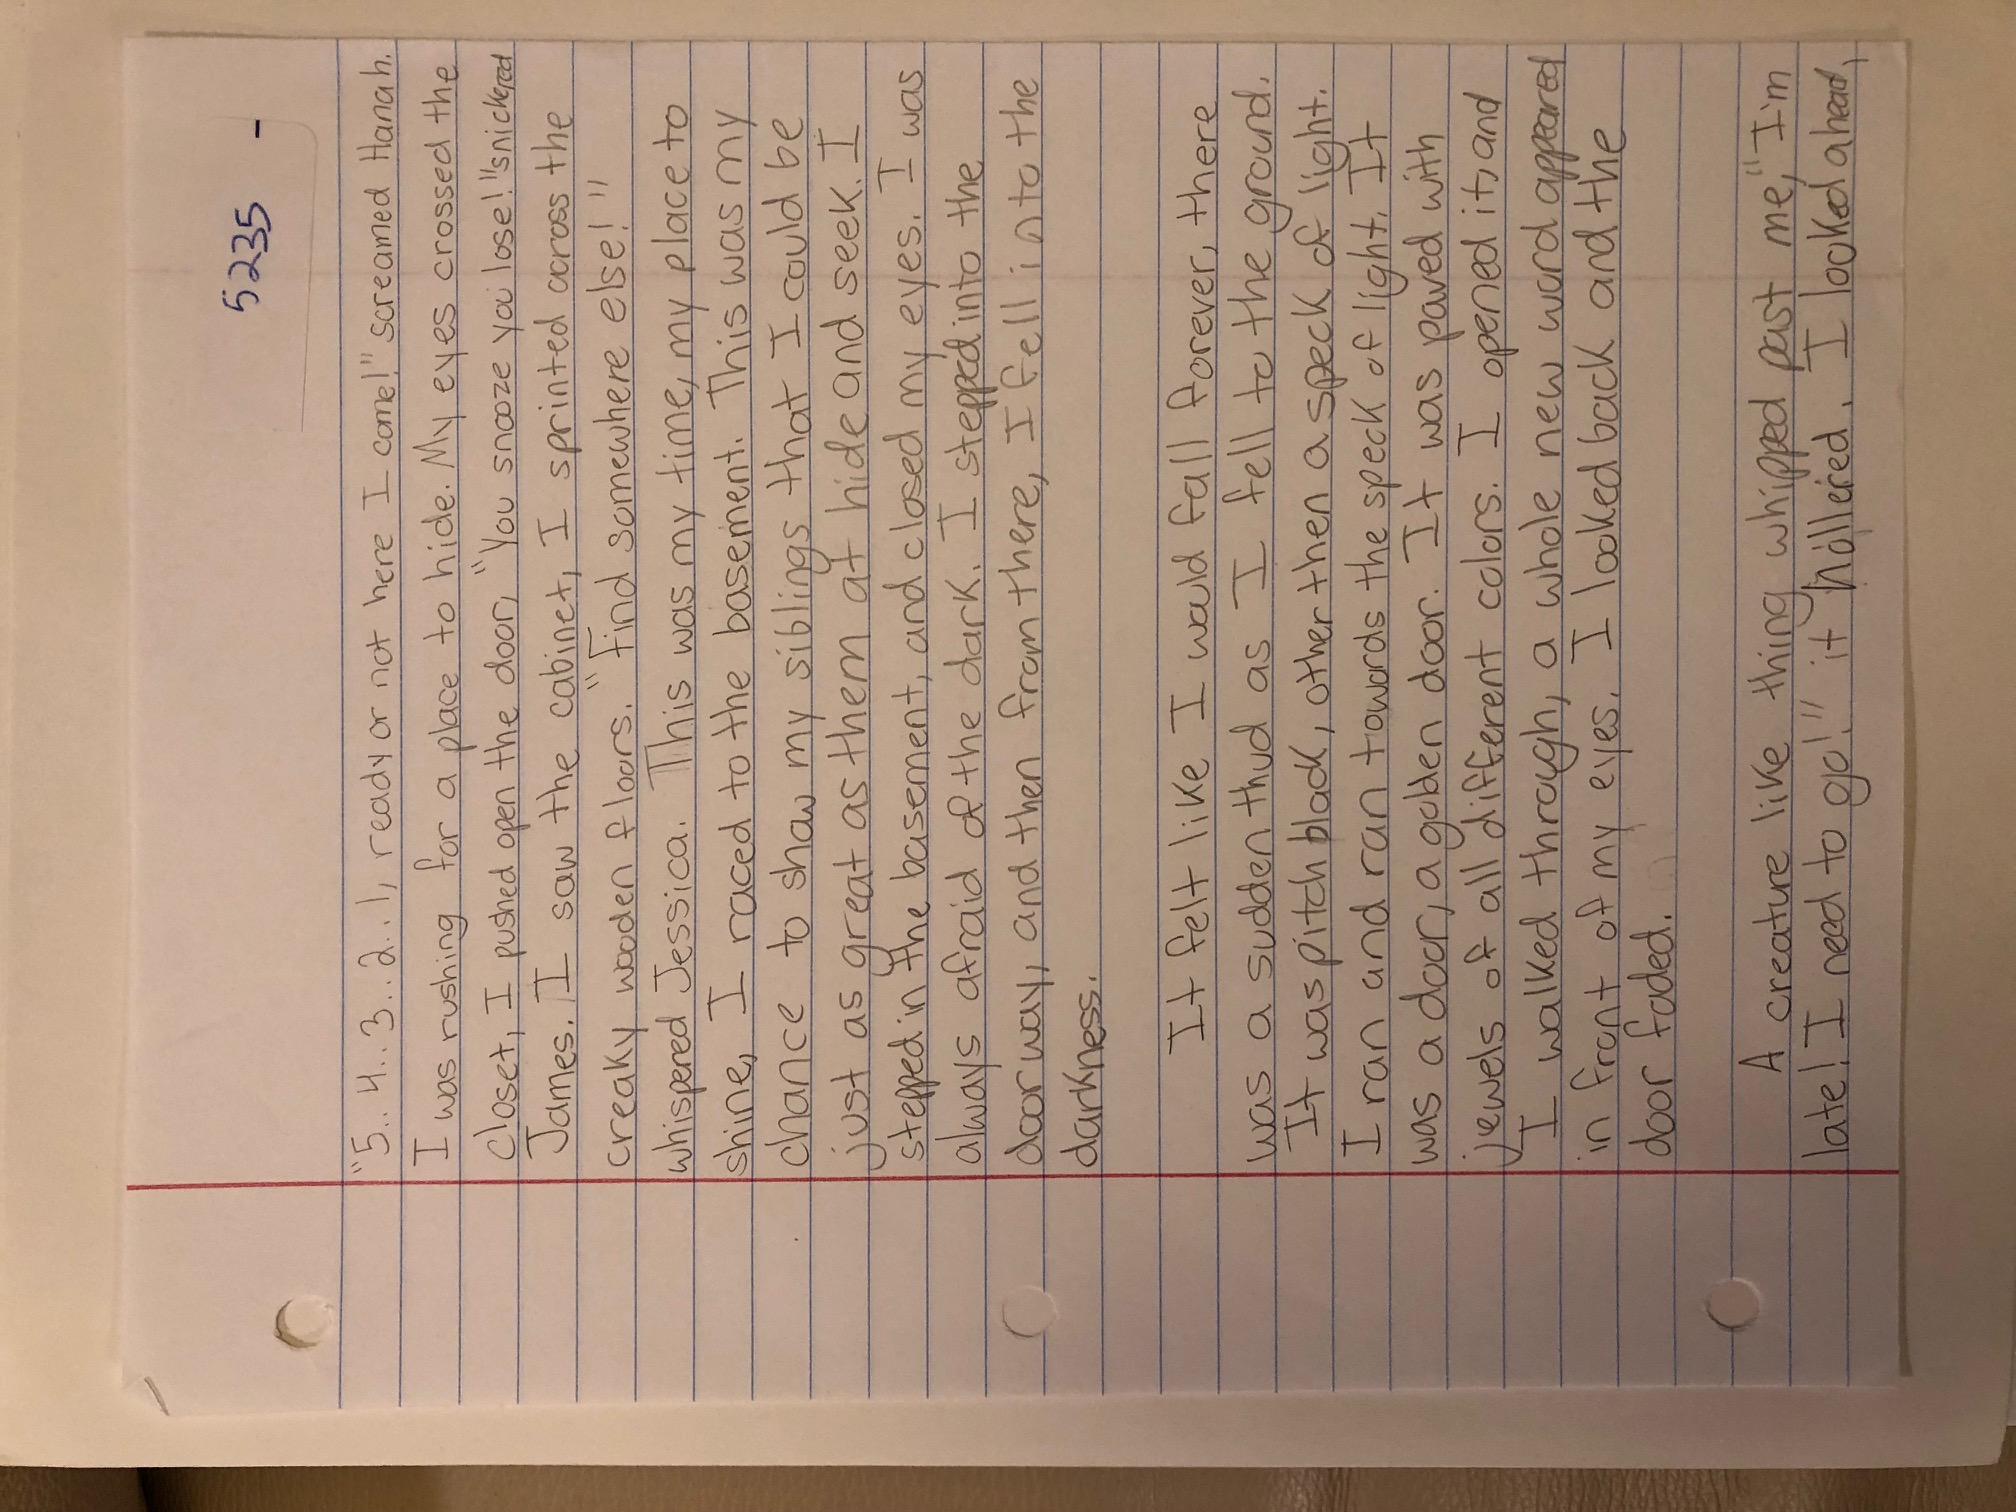 5235 -
"5.. 4.. 3.. 2.. 1, ready or not here I come!" screamed Hanah.
I was rushing for a place to hide. My eyes crossed the
closet, I pushed open the door, "You snooze you lose!" snickered
James. I saw the cabinet, I sprinted across the
creaky wooden floors. "Find somewhere else!"
whispered Jessica. This was my time, my place to
shine, I raced to the basement. This was my
chance to show my siblings that I could be
just as great as them at hide and seek. I
stepped in the basement, and closed my eyes. I was
always afraid of the dark. I stepped into the
doorway, and then from there, I fell into the
darkness.
It felt like I would fall forever, there
was a sudden thud as I fell to the ground.
It was pitch black, other then a speck of light.
I ran and ran towards the speck of light. It
was a door, a golden door. It was paved with
jewels of all different colors. I opened it, and
I walked through, a whole new word appeared
in front of my eyes. I looked back and the
door faded.
A creature like thing whipped past me, "I'm
late! I need to go!" it hollered. I looked ahead,